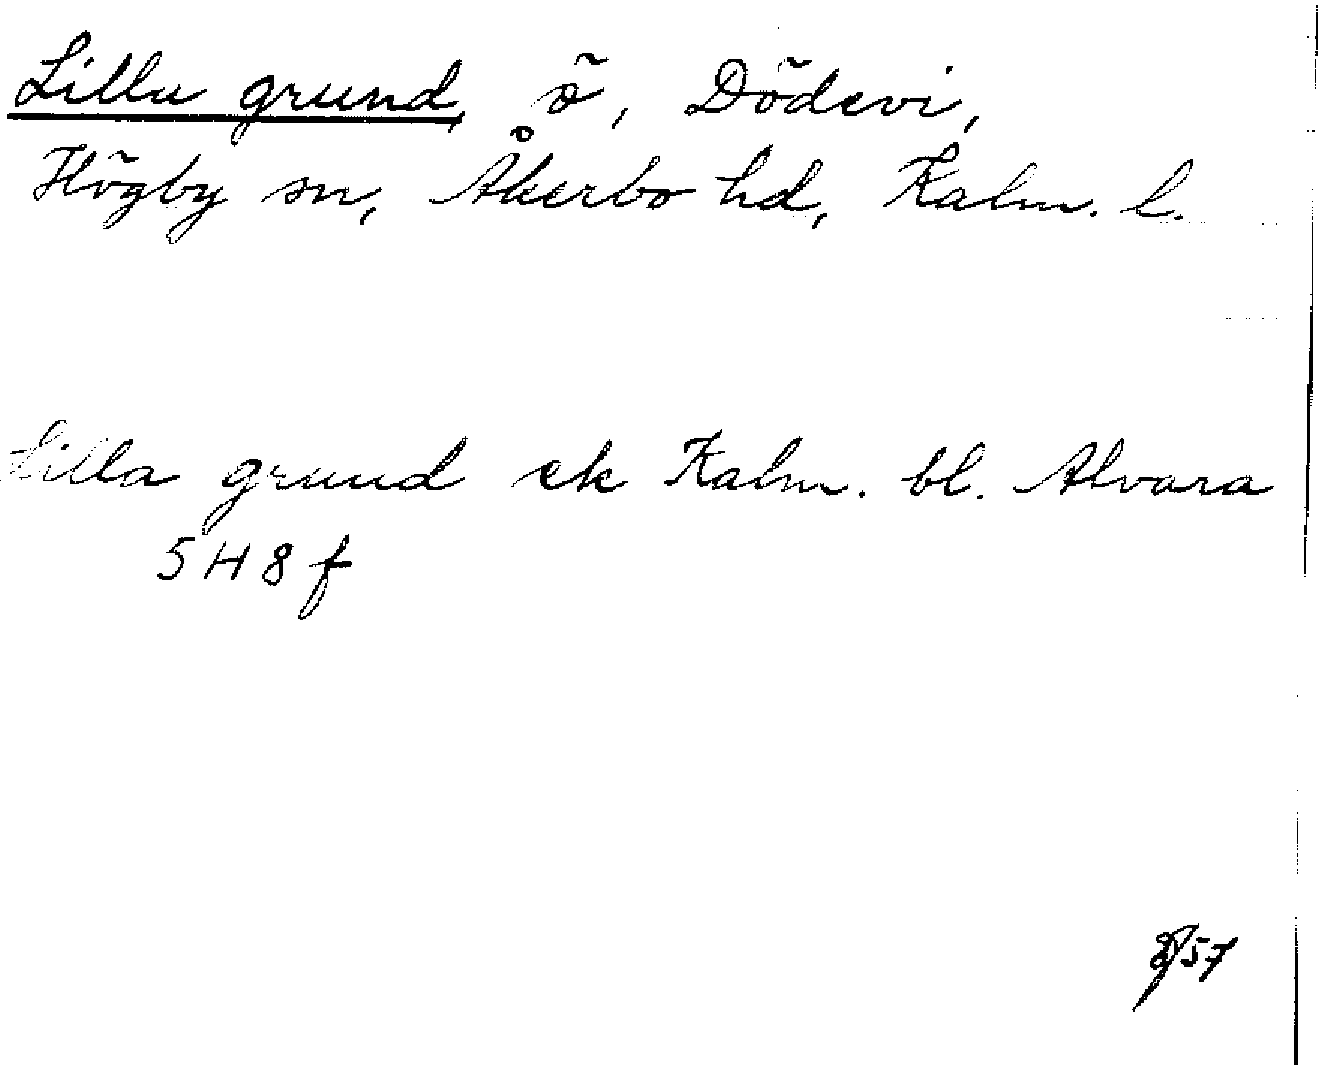 Lilla grund, ö, Dödevi,
Högby sn, Åkerbo hd, Kalm. l.
Lilla grund ek Kalm. bl. Alvara
5 H 8 f
57